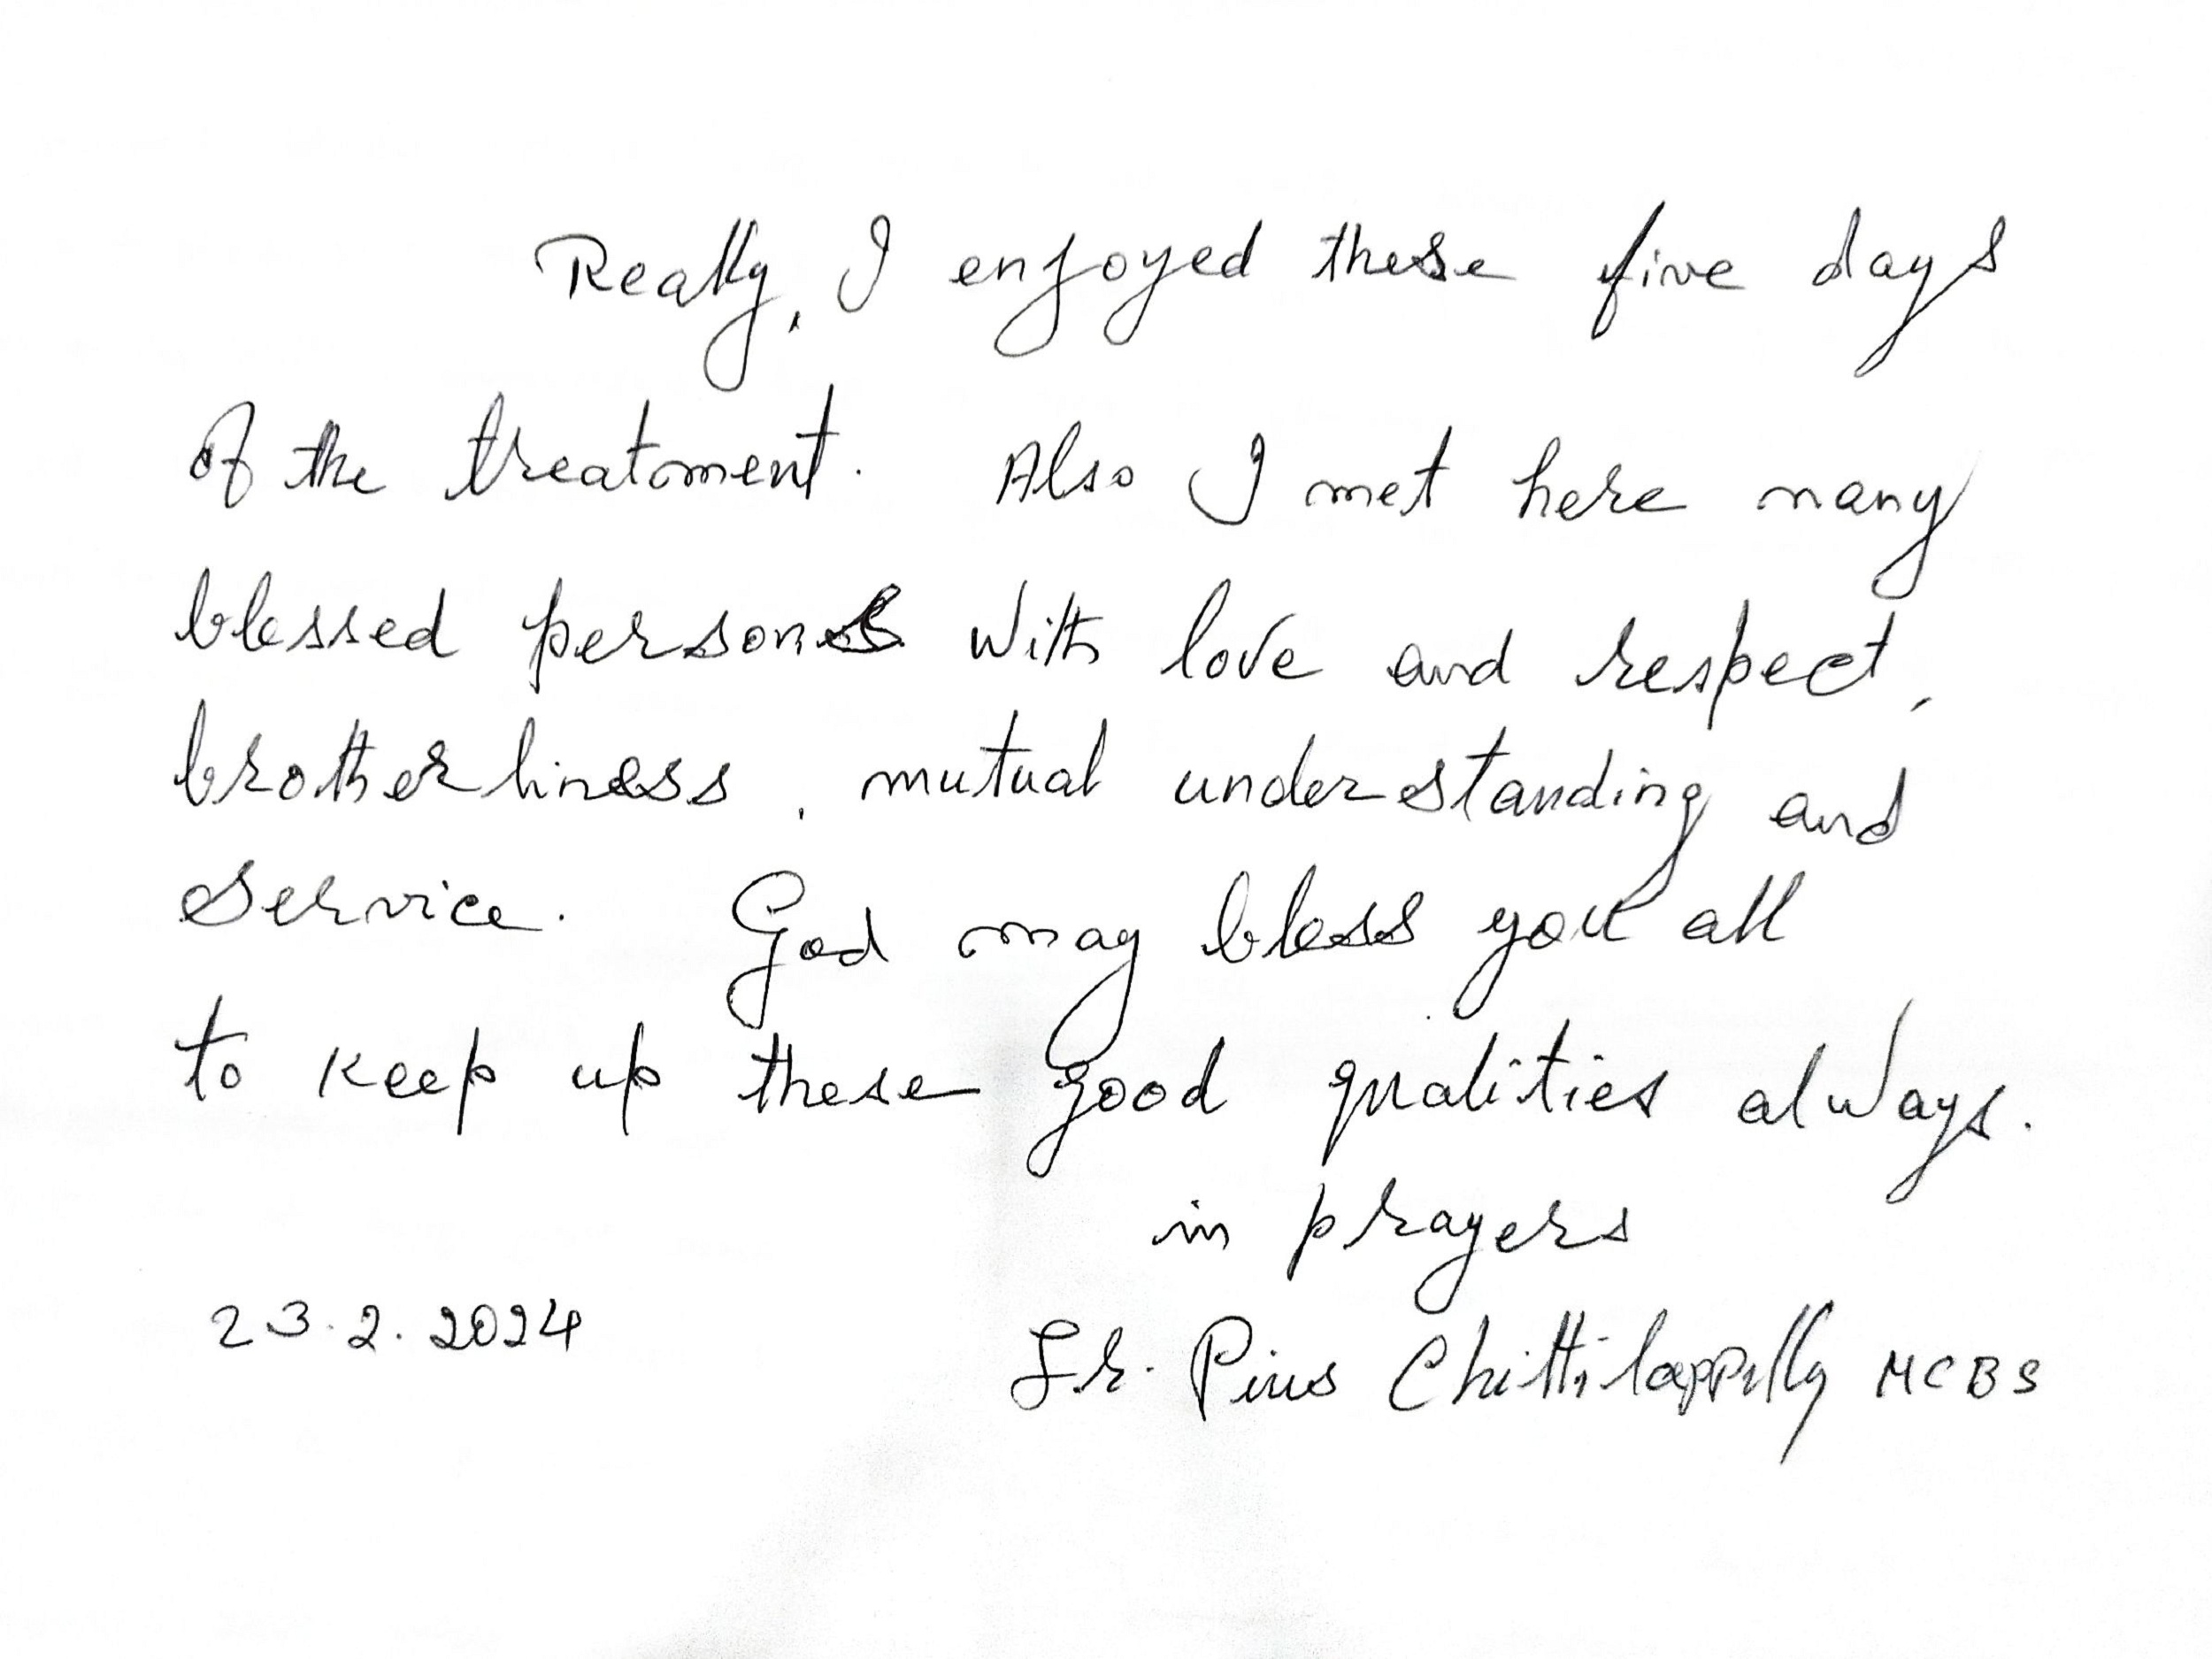 Really, I enjoyed these five days
of the treatment. Also I met here many
blessed persons with love and respect,
brotherliness, mutual understanding and
service. God may bless you all
to keep up these good qualities always.
in prayers
23.2.2024 Fr. Pius Chittilappilly MCBS